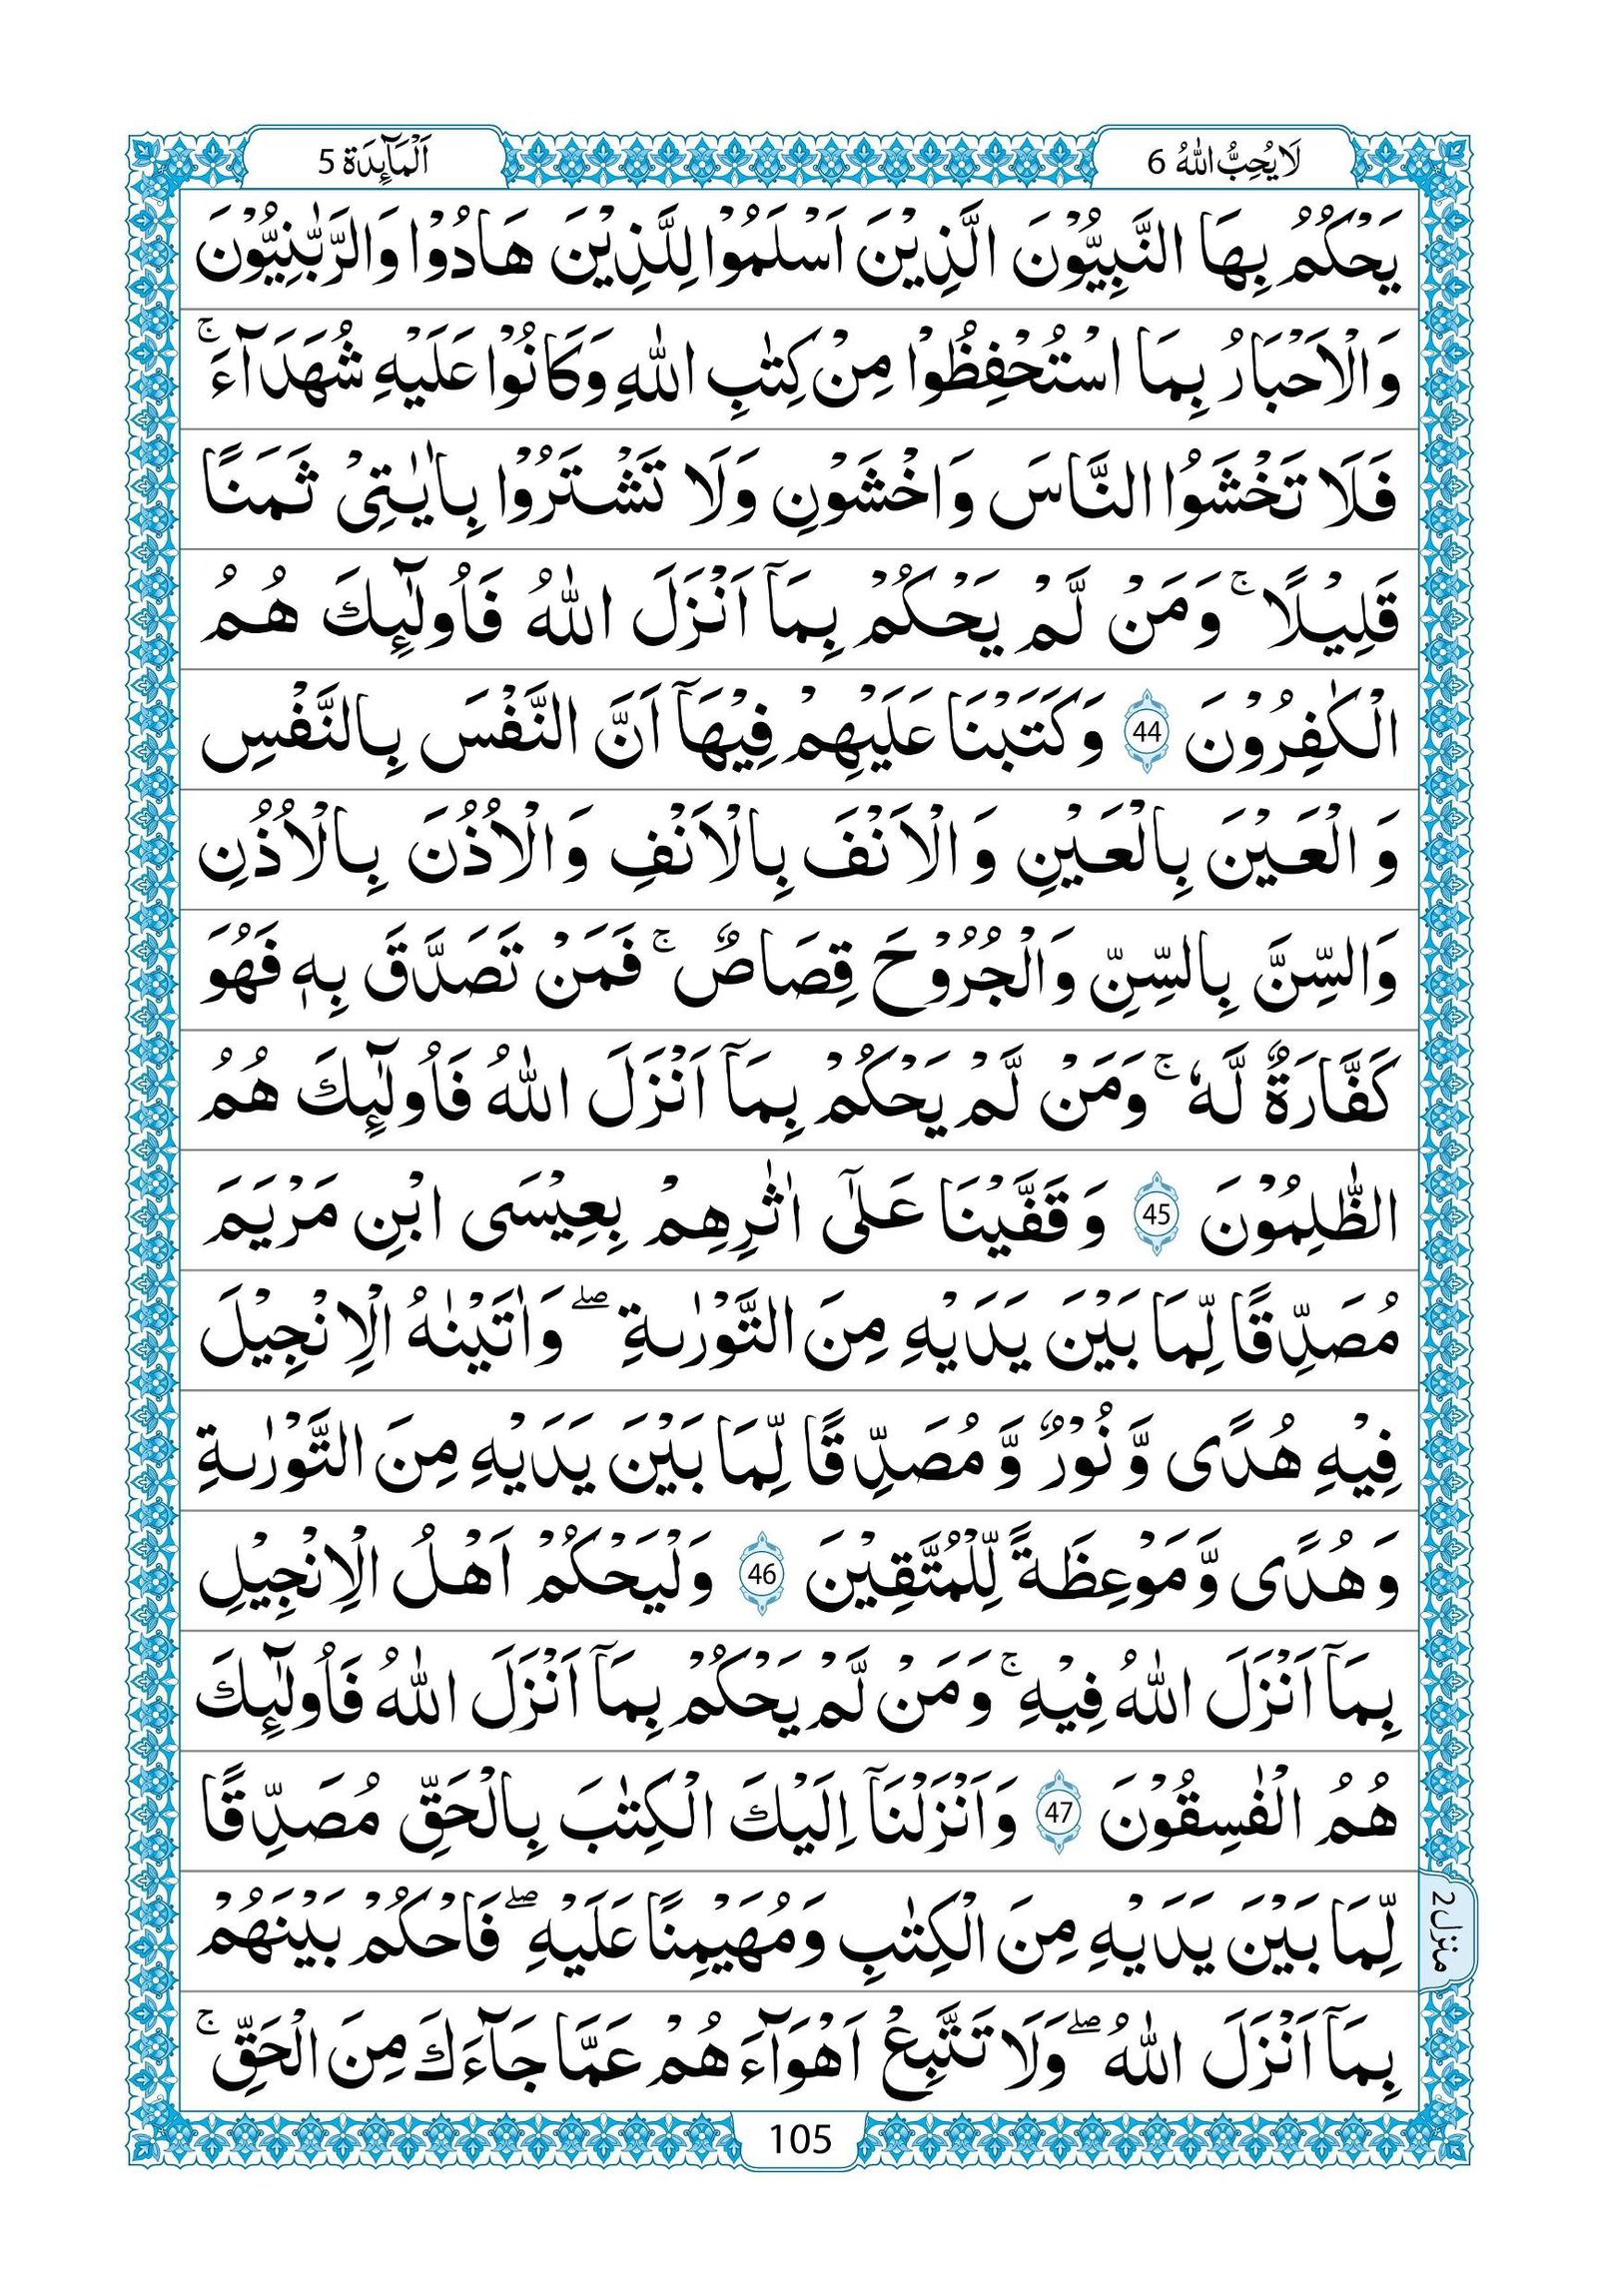 لَا يُحِبُّ اللّٰهُ 6
اَلْمَآئِدَة 5
يَحْكُمُ بِهَا النَّبِيُّوْنَ الَّذِيْنَ اَسْلَمُوْا لِلَّذِيْنَ هَادُوْا وَالرَّبّٰنِيُّوْنَ
وَالْاَحْبَارُ بِمَا اسْتُحْفِظُوْا مِنْ كِتٰبِ اللّٰهِ وَكَانُوْا عَلَيْهِ شُهَدَآءَ ۚ
فَلَا تَخْشَوُا النَّاسَ وَاخْشَوْنِ وَلَا تَشْتَرُوْا بِاٰيٰتِىْ ثَمَنًا
قَلِيْلًا ۚ وَمَنْ لَّمْ يَحْكُمْ بِمَآ اَنْزَلَ اللّٰهُ فَاُولٰٓئِكَ هُمُ
الْكٰفِرُوْنَ 44 وَكَتَبْنَا عَلَيْهِمْ فِيْهَآ اَنَّ النَّفْسَ بِالنَّفْسِ
وَالْعَيْنَ بِالْعَيْنِ وَالْاَنْفَ بِالْاَنْفِ وَالْاُذُنَ بِالْاُذُنِ
وَالسِّنَّ بِالسِّنِّ وَالْجُرُوْحَ قِصَاصٌ ۚ فَمَنْ تَصَدَّقَ بِهٖ فَهُوَ
كَفَّارَةٌ لَّهٗ ۚ وَمَنْ لَّمْ يَحْكُمْ بِمَآ اَنْزَلَ اللّٰهُ فَاُولٰٓئِكَ هُمُ
الظّٰلِمُوْنَ 45 وَقَفَّيْنَا عَلٰٓى اٰثٰرِهِمْ بِعِيْسَى ابْنِ مَرْيَمَ
مُصَدِّقًا لِّمَا بَيْنَ يَدَيْهِ مِنَ التَّوْرٰىةِ ۖ وَاٰتَيْنٰهُ الْاِنْجِيْلَ
فِيْهِ هُدًى وَّنُوْرٌ وَّمُصَدِّقًا لِّمَا بَيْنَ يَدَيْهِ مِنَ التَّوْرٰىةِ
وَهُدًى وَّمَوْعِظَةً لِّلْمُتَّقِيْنَ 46 وَلْيَحْكُمْ اَهْلُ الْاِنْجِيْلِ
بِمَآ اَنْزَلَ اللّٰهُ فِيْهِ ۚ وَمَنْ لَّمْ يَحْكُمْ بِمَآ اَنْزَلَ اللّٰهُ فَاُولٰٓئِكَ
هُمُ الْفٰسِقُوْنَ 47 وَاَنْزَلْنَآ اِلَيْكَ الْكِتٰبَ بِالْحَقِّ مُصَدِّقًا
لِّمَا بَيْنَ يَدَيْهِ مِنَ الْكِتٰبِ وَمُهَيْمِنًا عَلَيْهِ ۖ فَاحْكُمْ بَيْنَهُمْ
بِمَآ اَنْزَلَ اللّٰهُ ۖ وَلَا تَتَّبِعْ اَهْوَآءَهُمْ عَمَّا جَآءَكَ مِنَ الْحَقِّ ۚ
منزل 2
105